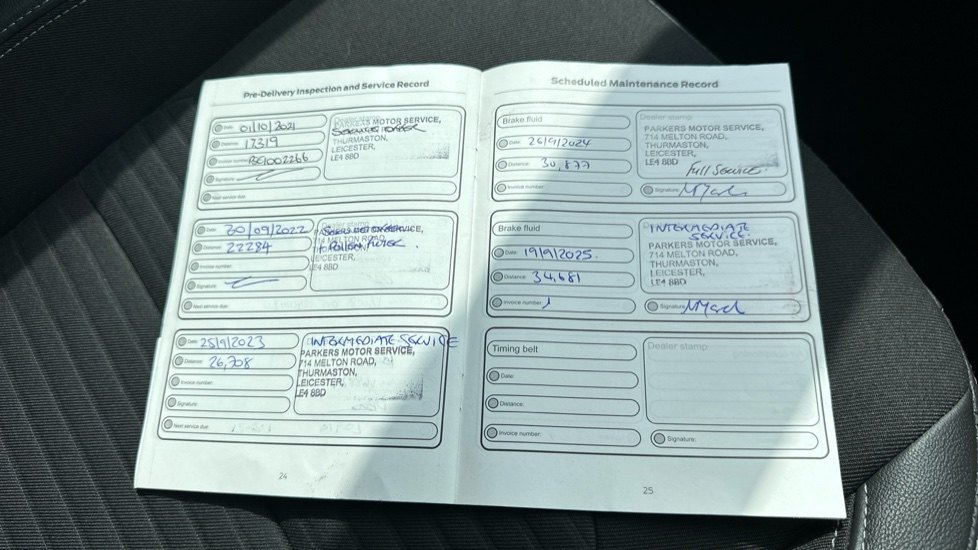 Pre-Delivery Inspection and Service Record
Date: 01/10/2021
Distance: 17319
Invoice number: B91002266
Signature:
Next service due:
PARKERS MOTOR SERVICE,
THURMASTON,
LEICESTER,
LE4 8BD
Date: 30/09/2022
Distance: 22284
Invoice number:
Signature:
Next service due:
Dealer stamp
714 MELTON ROAD,
+ POLLEN FILTER.
LEICESTER,
LE4 8BD
Date: 25/9/2023
Distance: 26,708
Invoice number:
Signature:
Next service due:
INTERMEDIATE SERVICE
PARKERS MOTOR SERVICE,
714 MELTON ROAD,
THURMASTON,
LEICESTER,
LE4 8BD
24
Scheduled Maintenance Record
Brake fluid
Date: 26/9/2024
Distance: 30,877
Invoice number:
Dealer stamp
PARKERS MOTOR SERVICE,
714 MELTON ROAD,
THURMASTON,
LEICESTER,
LE4 8BD
FULL SERVICE.
Signature:
Brake fluid
Date: 19/9/2025.
Distance: 34,681
Invoice number:
INTERMEDIATE
SERVICE.
PARKERS MOTOR SERVICE,
714 MELTON ROAD,
THURMASTON,
LEICESTER,
LE4 8BD
Signature:
Timing belt
Date:
Distance:
Invoice number:
Dealer stamp
Signature:
25